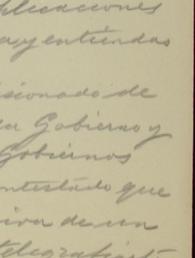 plicaciones
a, y entiendas
isionado de
la Gobierno y
Gobiernos
ntestado que
iva de un